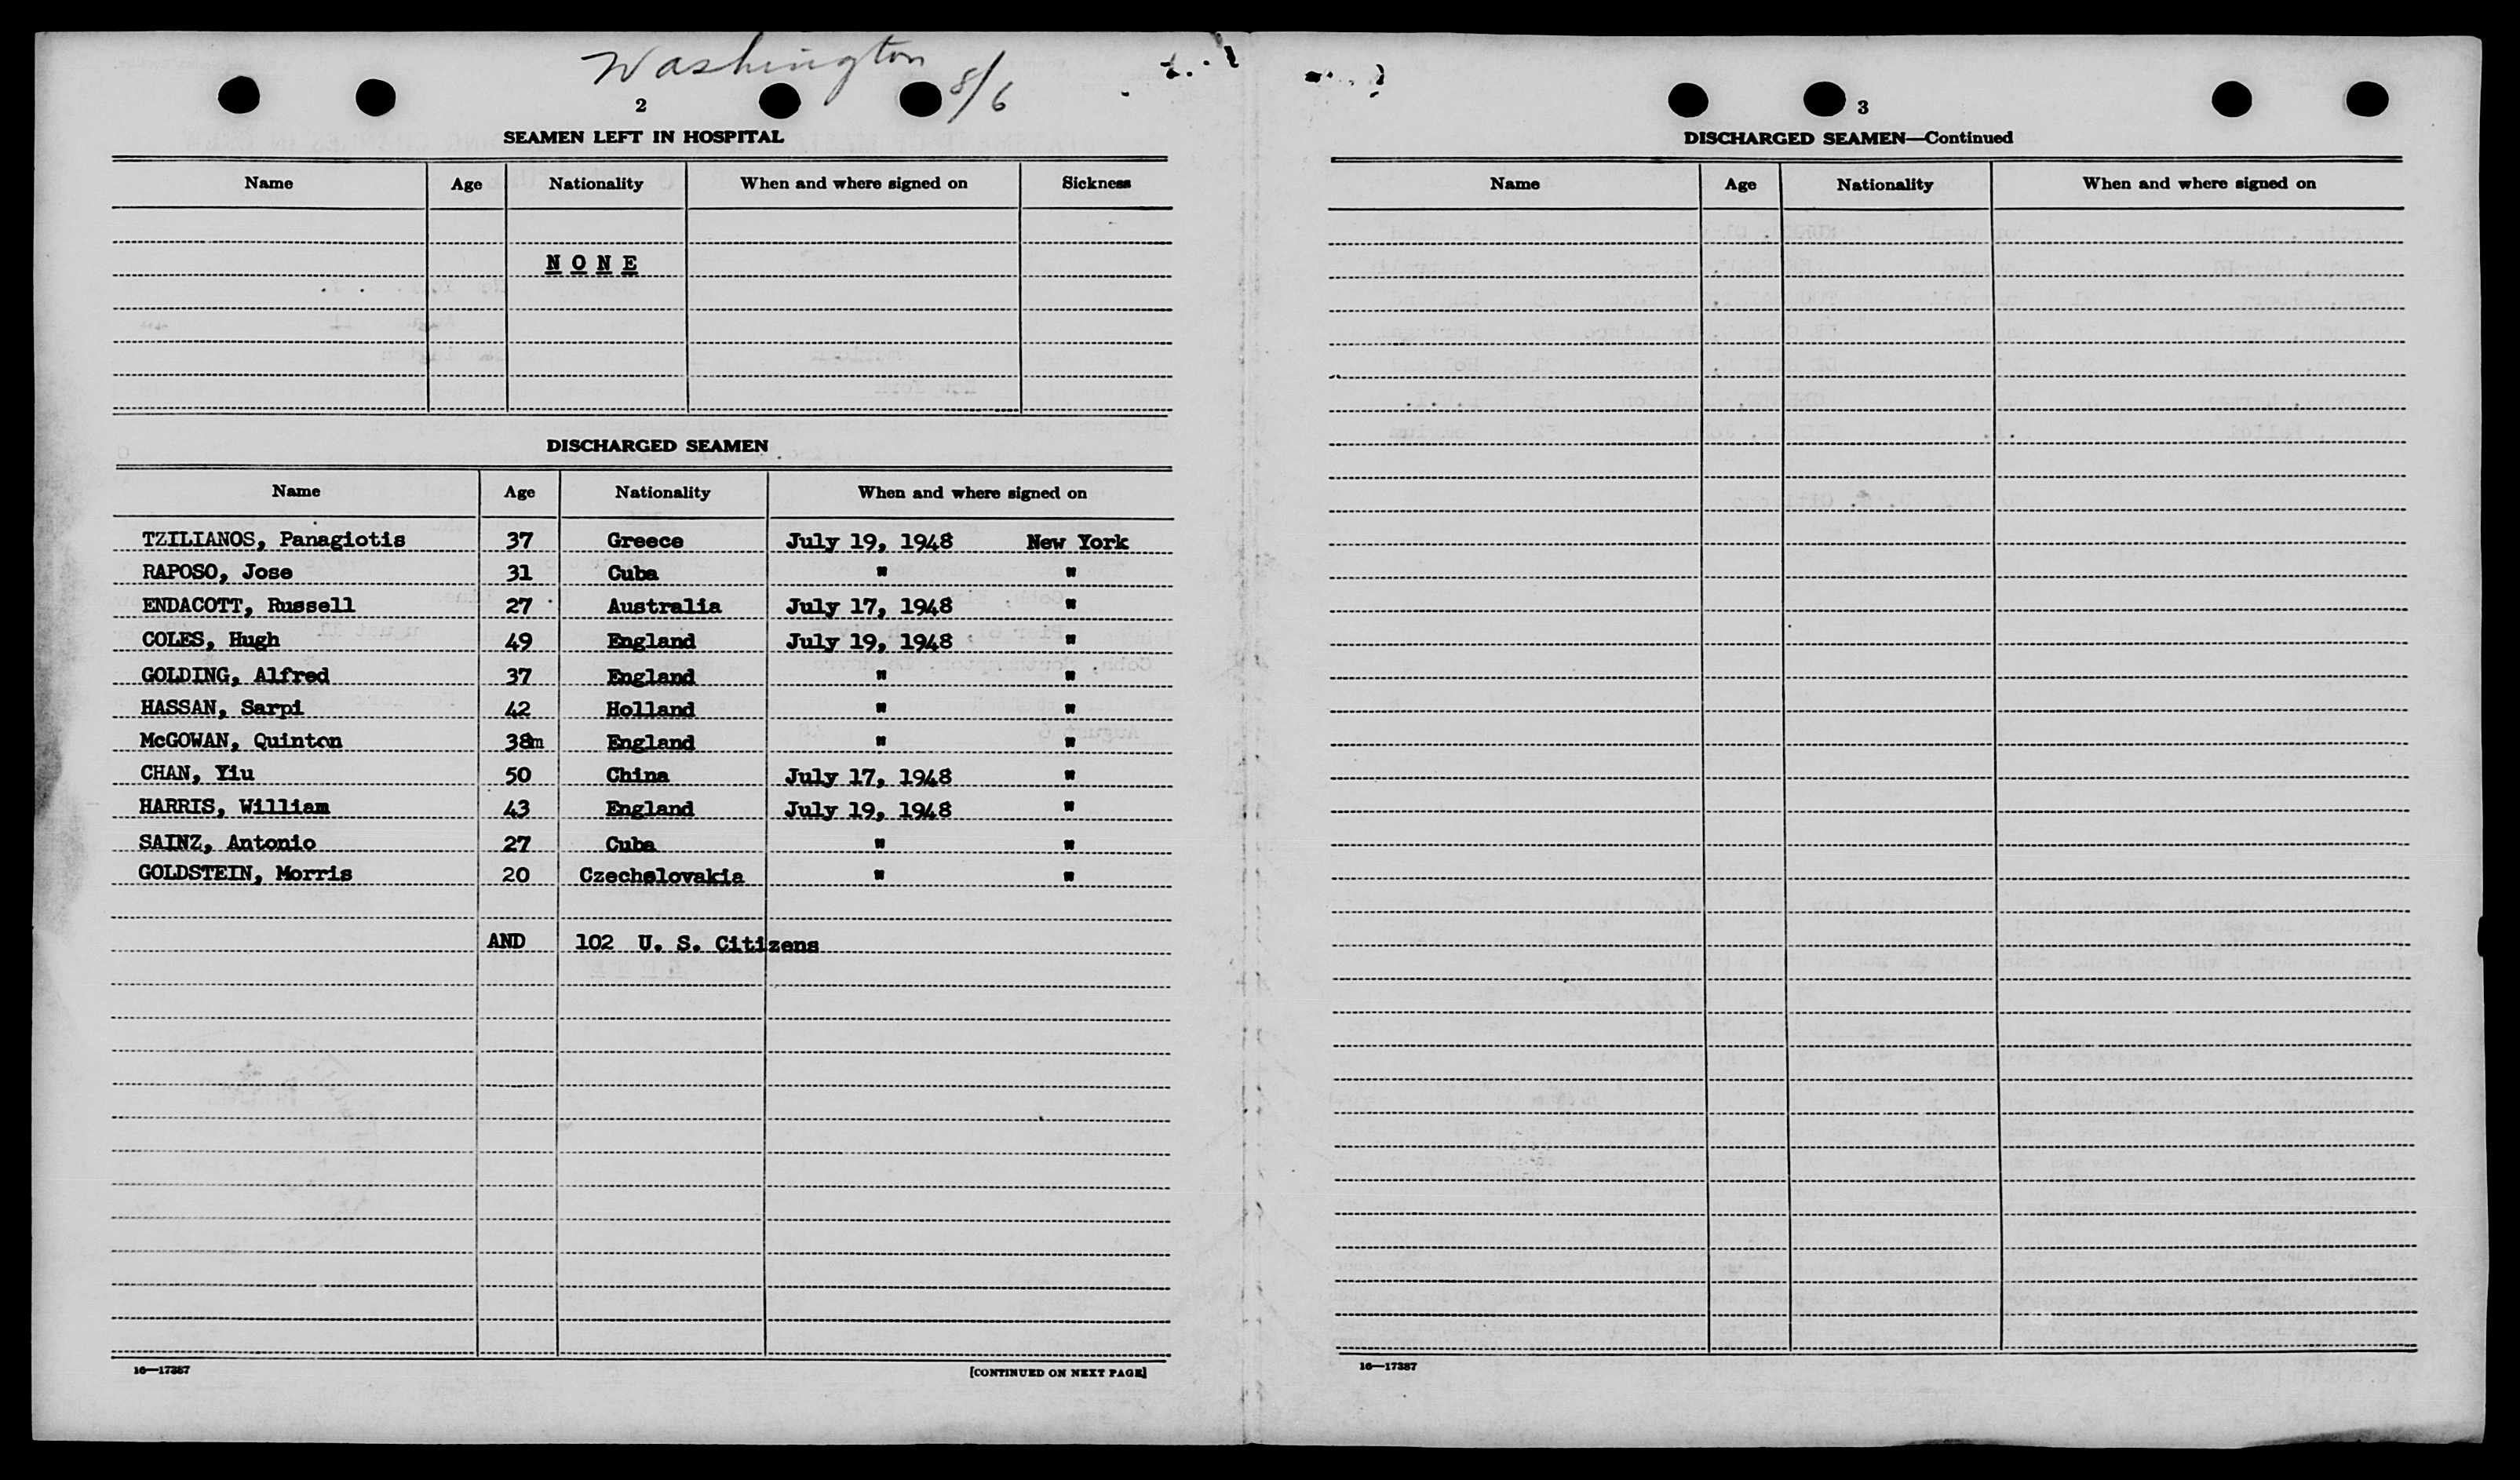 Washington 8/6
2
SEAMEN LEFT IN HOSPITAL
Name Age Nationality When and where signed on Sickness
NONE
DISCHARGED SEAMEN
Name Age Nationality When and where signed on
TZILIANOS, Panagiotis 37 Greece July 19, 1948 New York
RAPOSO, Jose 31 Cuba " "
ENDACOTT, Russell 27 Australia July 17, 1948 "
COLES, Hugh 49 England July 19, 1948 "
GOLDING, Alfred 37 England " "
HASSAN, Sarpi 42 Holland " "
McGOWAN, Quinton 38m England " "
CHAN, Yiu 50 China July 17, 1948 "
HARRIS, William 43 England July 19, 1948 "
SAINZ, Antonio 27 Cuba " "
GOLDSTEIN, Morris 20 Czechslovakia " "
AND 102 U. S. Citizens
16—17387
[CONTINUED ON NEXT PAGE]
3
DISCHARGED SEAMEN—Continued
Name Age Nationality When and where signed on
16—17387